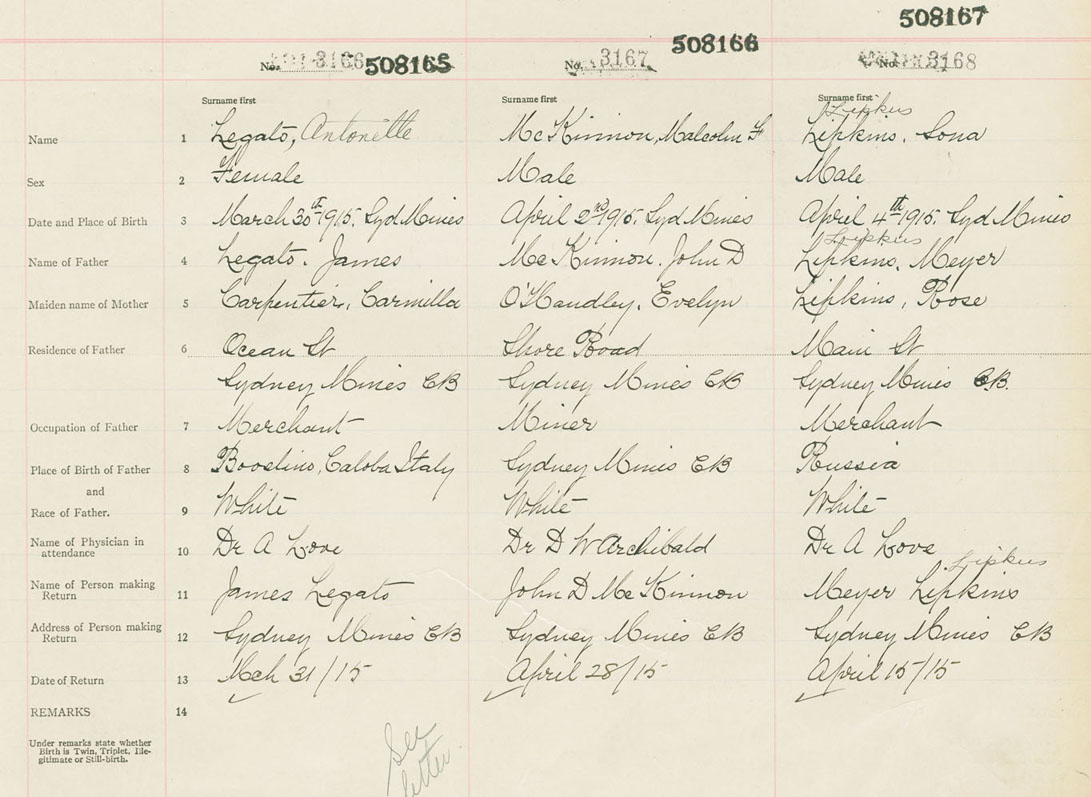 508167
508166
No. 3166 508165 No. 3167 No. 3168
Surname first Surname first Surname first
Lipkus
Name 1 Legato, Antonette McKinnon, Malcolm F Lipkins, Sona
Sex 2 Female Male Male
Date and Place of Birth 3 March 30th 1915, Syd Mines April 2nd 1915, Syd Mines April 4th 1915, Syd Mines
Lipkus
Name of Father 4 Legato. James McKinnon. John D Lipkins. Meyer
Maiden name of Mother 5 Carpentier, Carmilla O'Handley, Evelyn Lipkins, Rose
Residence of Father 6 Ocean St Shore Road Main St
Sydney Mines CB Sydney Mines CB Sydney Mines C.B.
Occupation of Father 7 Merchant Miner Merchant
Place of Birth of Father 8 Italy Sydney Mines CB Russia
and
Race of Father. 9 White White White
Name of Physician in
attendance 10 Dr A Love Dr D W Archibald Dr A Love
Lipkus
Name of Person making
Return 11 James Legato John D McKinnon Meyer Lipkins
Address of Person making
Return 12 Sydney Mines CB Sydney Mines CB Sydney Mines CB
Date of Return 13 Mch 31/15 April 28/15 April 15/15
REMARKS 14
Under remarks state whether
Birth is Twin, Triplet, Ille-
gitimate or Still-birth.
See
letter